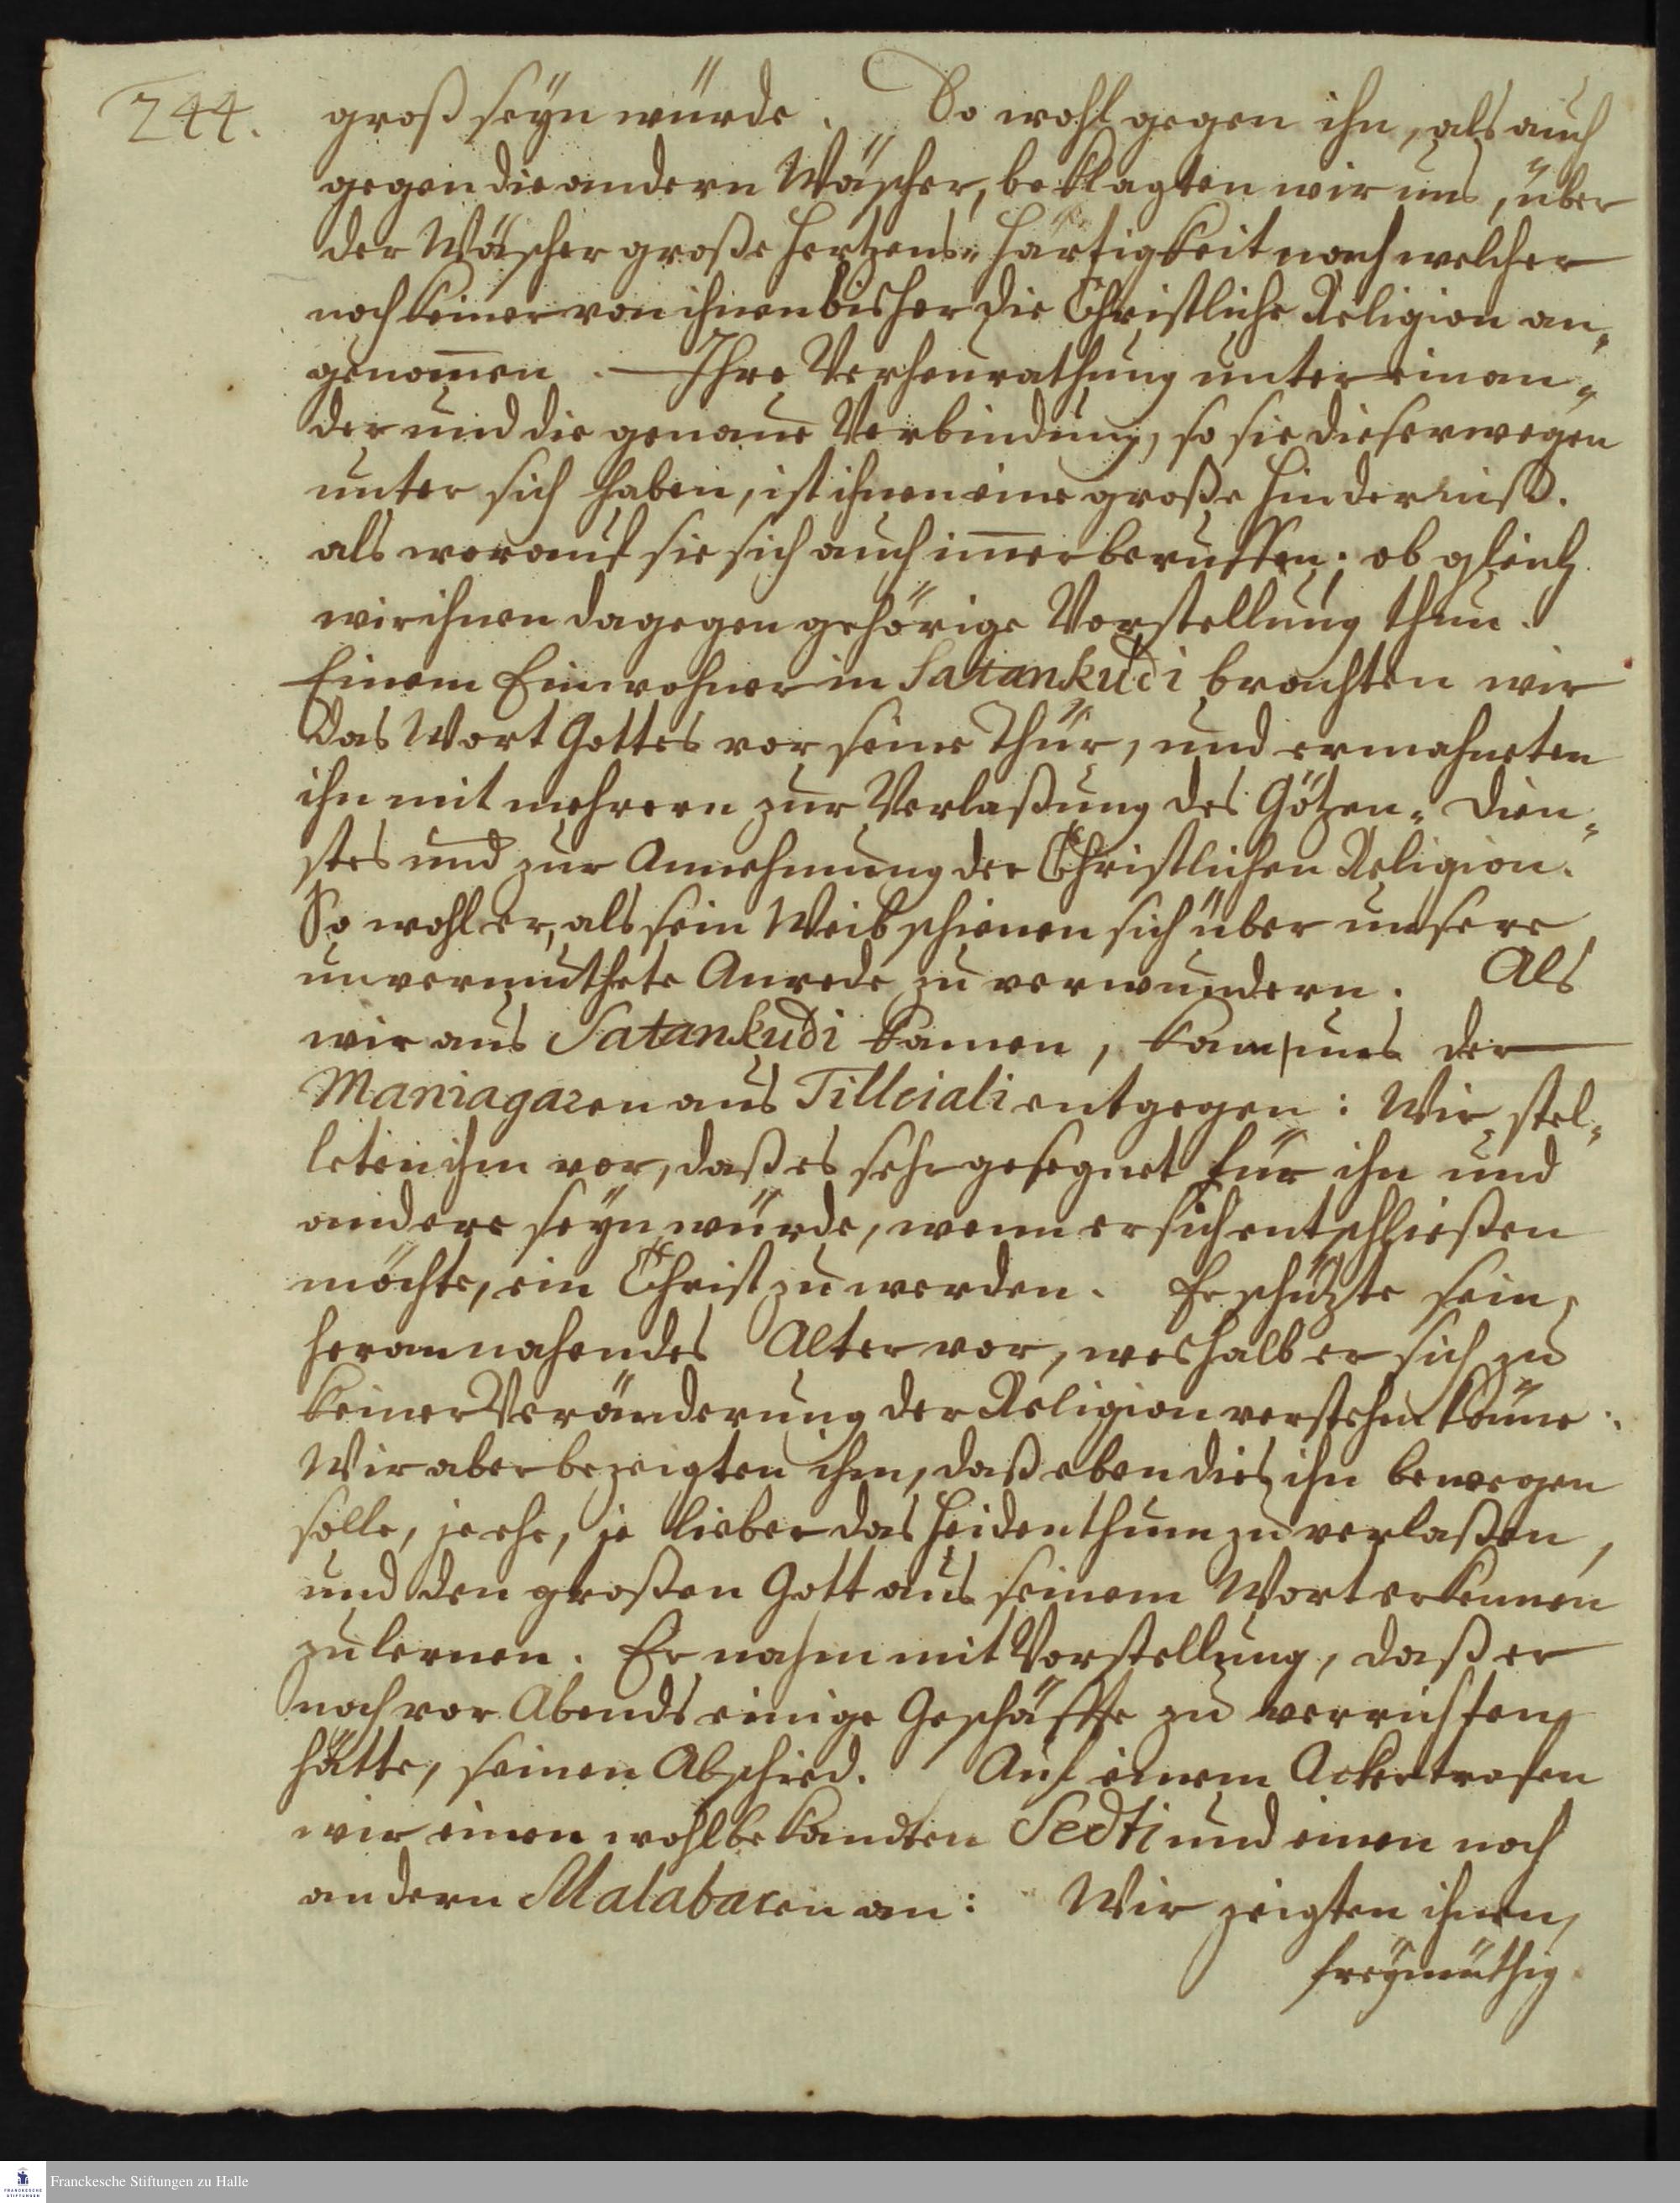 244.
groß seyn würde. So wohl gegen ihn, als auch
gegen die andern Wäscher, beklagten wir uns, über
der Wäscher große Hertzens-Härtigkeit nach welcher
noch keiner von ihnen bisher die Christliche Religion an-
genom̅en. Ihre Verheurathung unter einan-
der und die genaue Verbindung, so sie dieserwegen
unter sich haben, ist ihnen eine große Hinderniß.
als worauf sie sich auch im̅er beruffen; ob gleich
wir ihnen dagegen gehörige Vorstellung thun.
Einem Einwohner in Satankudi brachten wir
das Wort Gottes vor seine Thür, und ermahneten
ihn mit mehrern zur Verlaßung des Götzen-Dien-
stes und zur Annehmung der Christlichen Religion.
So wohl er, als sein Weib schienen sich über unsere
unvermuthete Anrede zu verwundern. Als
wir aus Satankudi kamen, kam uns der
Maniagaren aus Tilleiali entgegen: Wir stel-
leten ihm vor, daß es sehr gesegnet für ihn und
andere seyn würde, wenn er sich entschließen
möchte, ein Christ zu werden. Er schützte sein
herannahendes Alter vor, weshalb er sich zu
keiner Veränderung der Religion verstehen könne.
Wir aber bezeigten ihm, daß eben dies ihn bewegen
solle, je ehe, je lieber das Heidenthum zu verlaßen,
und den großen Gott aus seinem Wort erkennen
zu lernen. Er nahm mit Vorstellung, daß er
noch vor Abends einige Geschäffte zu verrichten
hätte, seinen Abschied. Auf einem Acker trafen
wir einen wohlbekandten Sedti und einen noch
andern Malabaren an: Wir zeigten ihnen,
freymüthig
Franckesche Stiftungen zu Halle